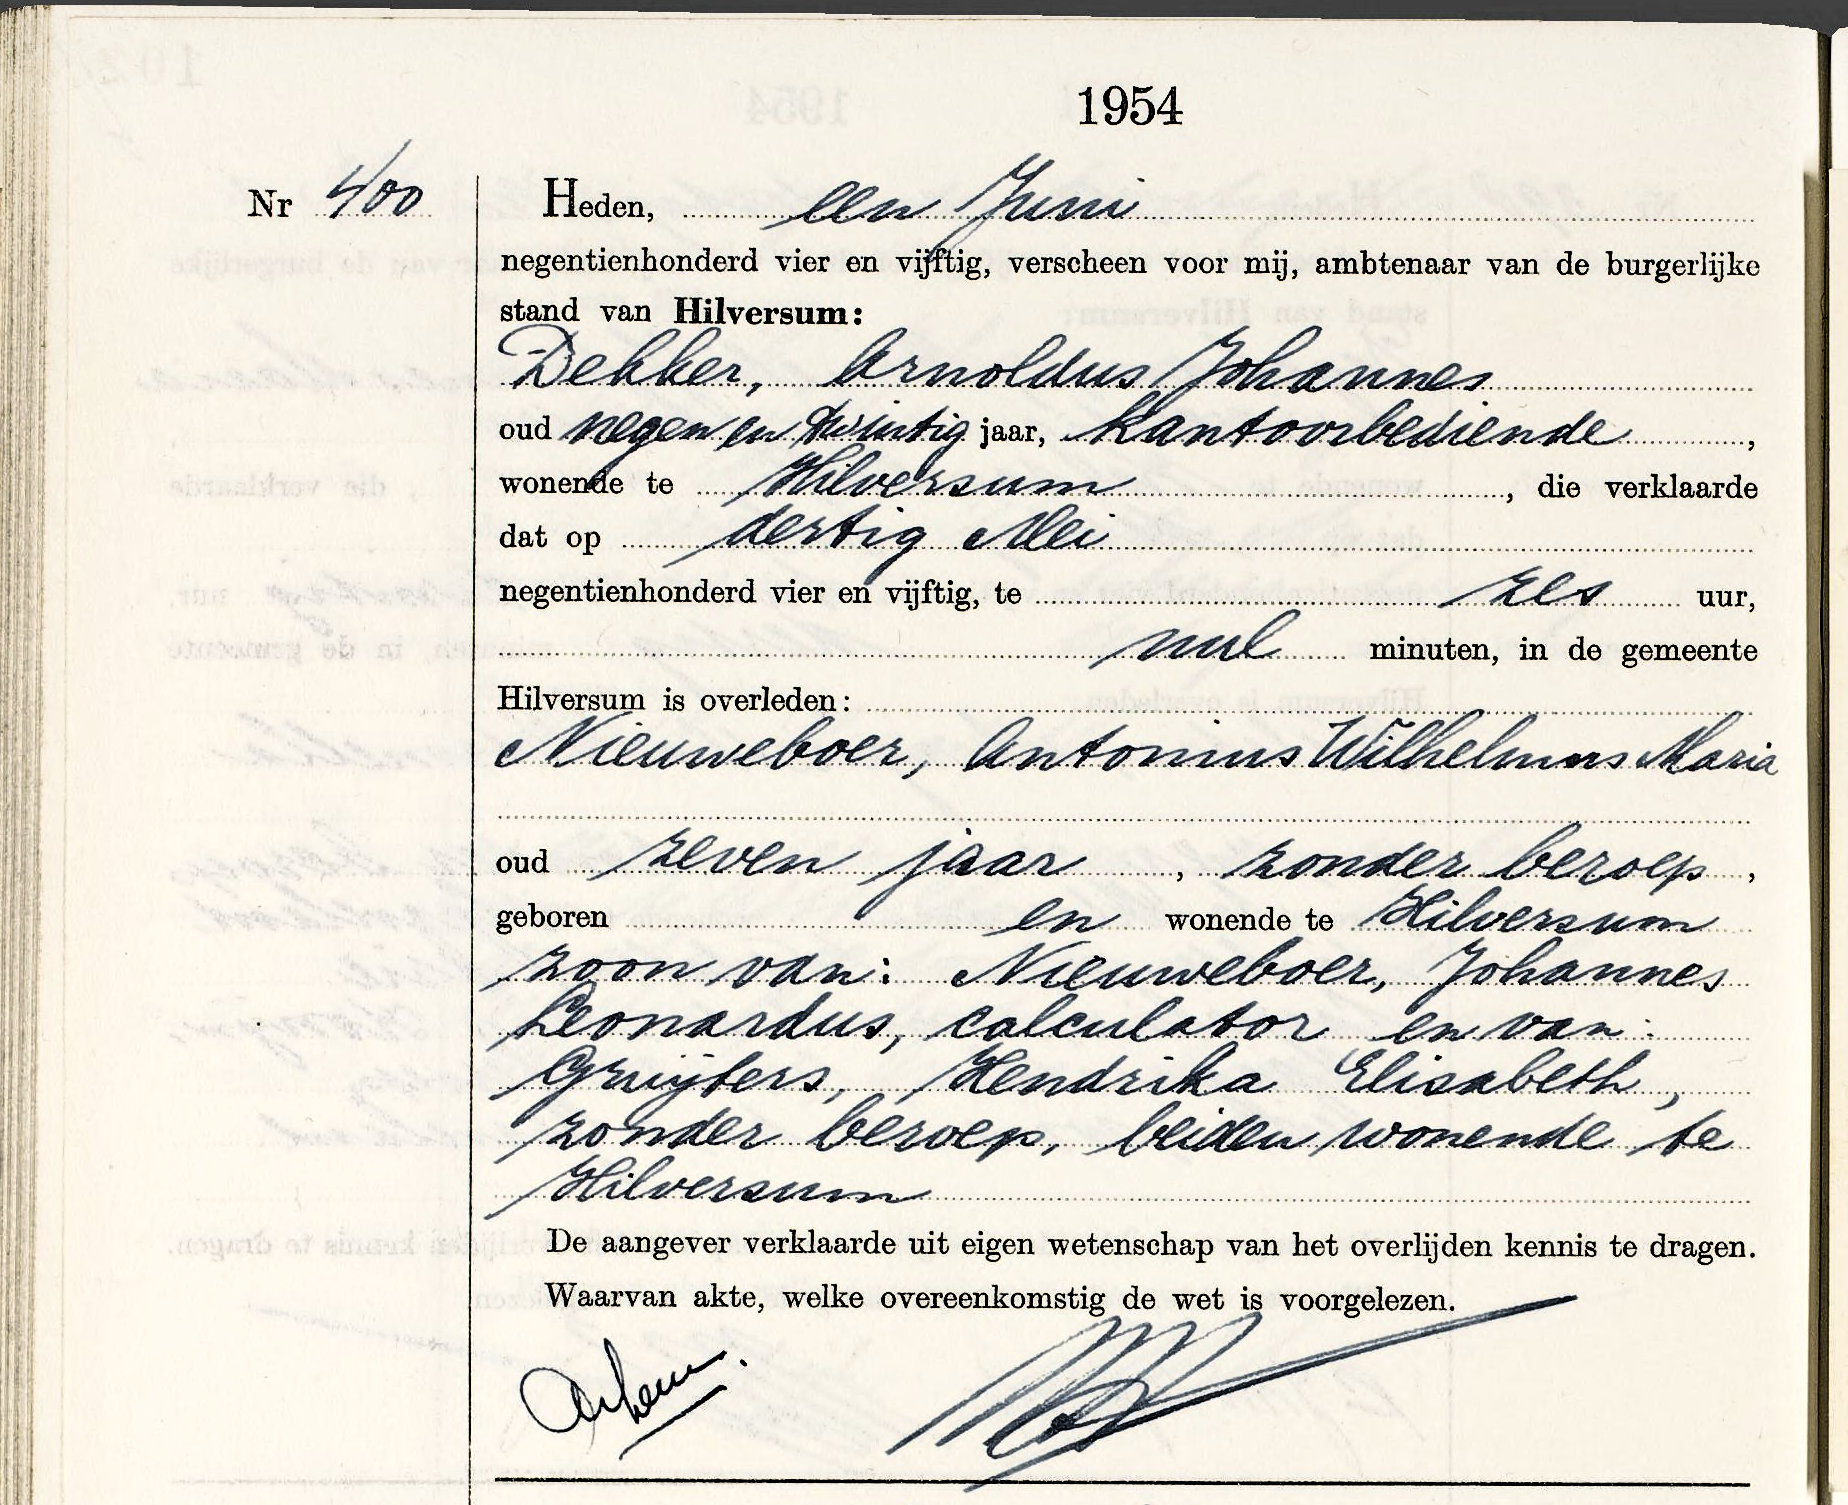 1954
Nr 400
Heden, een Juni
negentienhonderd vier en vijftig, verscheen voor mij, ambtenaar van de burgerlijke
stand van Hilversum:
Dekker, Arnoldus Johannes
oud negen en twintig jaar, kantoorbediende,
wonende te Hilversum, die verklaarde
dat op dertig Mei
negentienhonderd vier en vijftig, te zes uur,
nul minuten, in de gemeente
Hilversum is overleden:
Nieuweboer, Antonius Wilhelmus Maria
oud zeven jaar, zonder beroep,
geboren en wonende te Hilversum
zoon van: Nieuweboer, Johannes
Leonardus, calculator en van:
Gruijters, Hendrika Elisabeth,
zonder beroep, beiden wonende te
Hilversum
De aangever verklaarde uit eigen wetenschap van het overlijden kennis te dragen.
Waarvan akte, welke overeenkomstig de wet is voorgelezen.